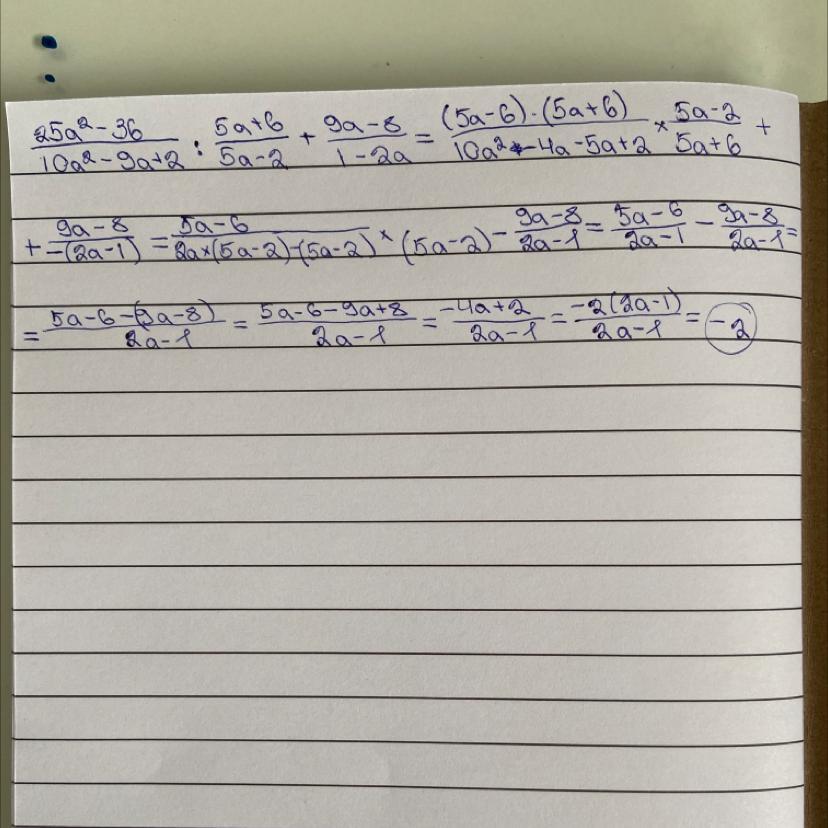 25a²-36/10a²-9a+2 : 5a+6/5a-2 + 9a-8/1-2a = (5a-6)·(5a+6)/10a²-4a-5a+2 × 5a-2/5a+6 +
+ 9a-8/-(2a-1) = 5a-6/2a×(5a-2)-(5a-2) × (5a-2) - 9a-8/2a-1 = 5a-6/2a-1 - 9a-8/2a-1 =
= 5a-6-(9a-8)/2a-1 = 5a-6-9a+8/2a-1 = -4a+2/2a-1 = -2(2a-1)/2a-1 = -2